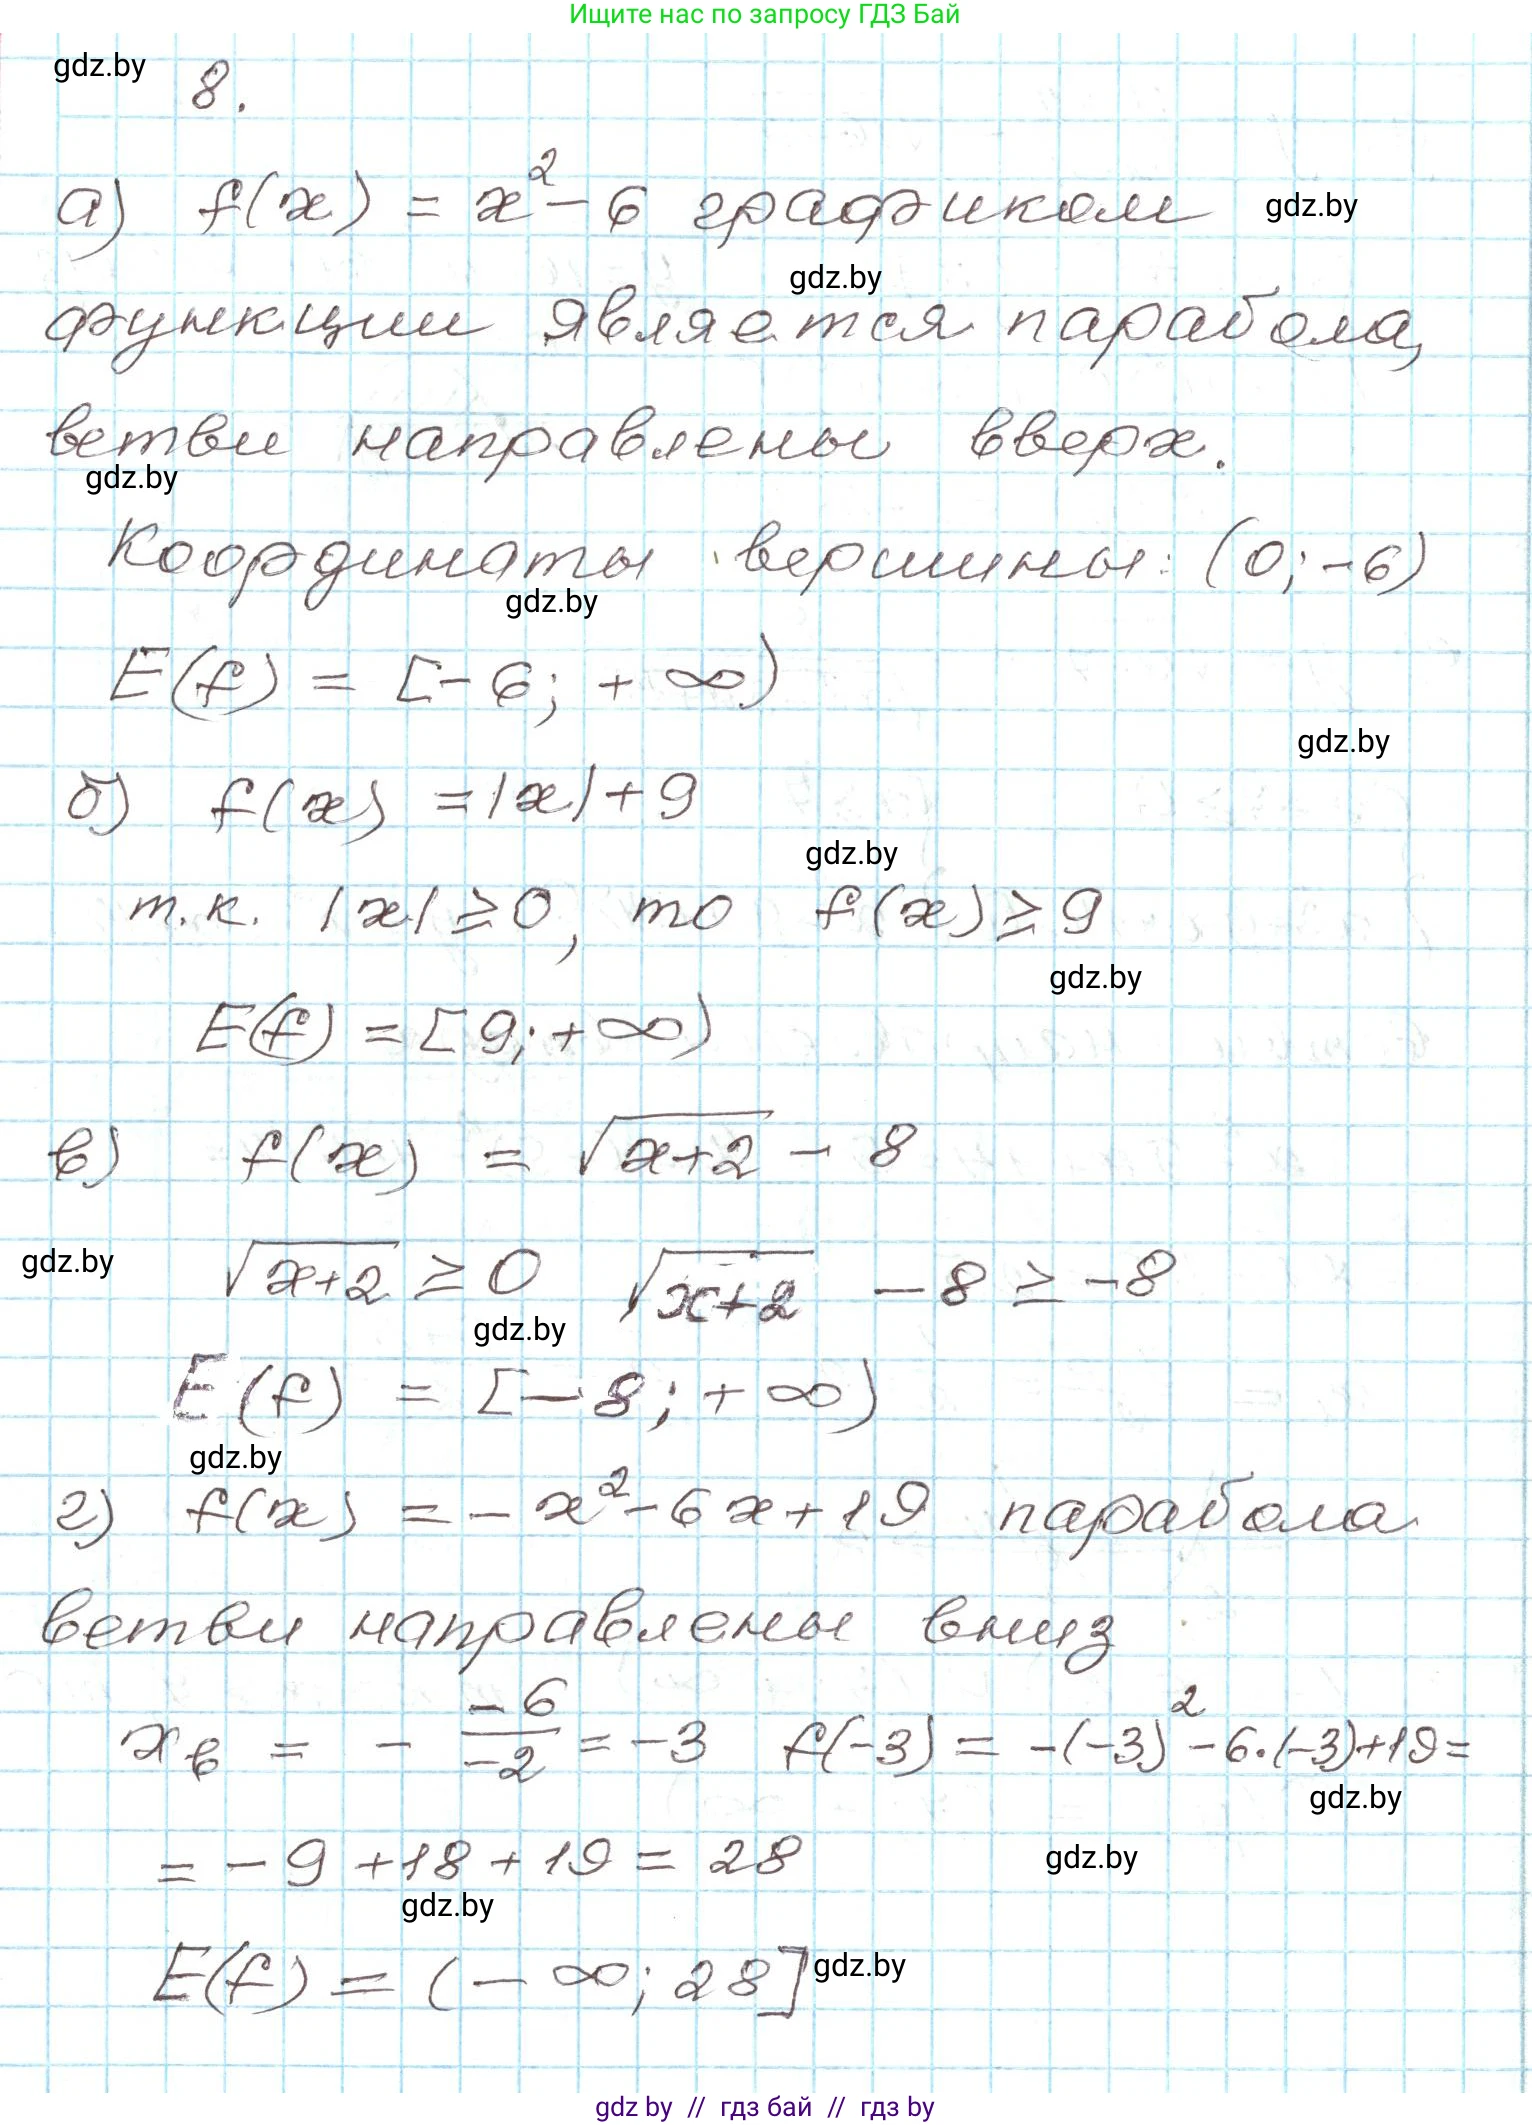 Ищите нас по запросу ГДЗ Бай
gdz.by
8.
а) f(x) = x² - 6 графиком
gdz.by
gdz.by
функции является парабола,
ветви направлены вверх.
gdz.by
Координаты вершины: (0; -6)
gdz.by
E(f) = [-6; +∞)
gdz.by
б) f(x) = |x| + 9
gdz.by
т.к. |x| ≥ 0, то f(x) ≥ 9
gdz.by
E(f) = [9; +∞)
в) f(x) = √(x+2) - 8
gdz.by
√(x+2) ≥ 0 √(x+2) - 8 ≥ -8
gdz.by
E(f) = [-8; +∞)
gdz.by
г) f(x) = -x² - 6x + 19 парабола
ветви направлены вниз
xв = - -6/-2 = -3 f(-3) = -(-3)² - 6·(-3) + 19 =
gdz.by
= -9 + 18 + 19 = 28
gdz.by
gdz.by
E(f) = (-∞; 28]
gdz.by
gdz by // гдз бай // гдз by